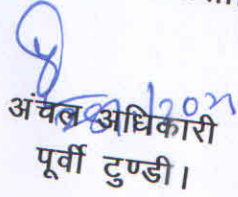 अंचल अधिकारी
पूर्वी टुण्डी।